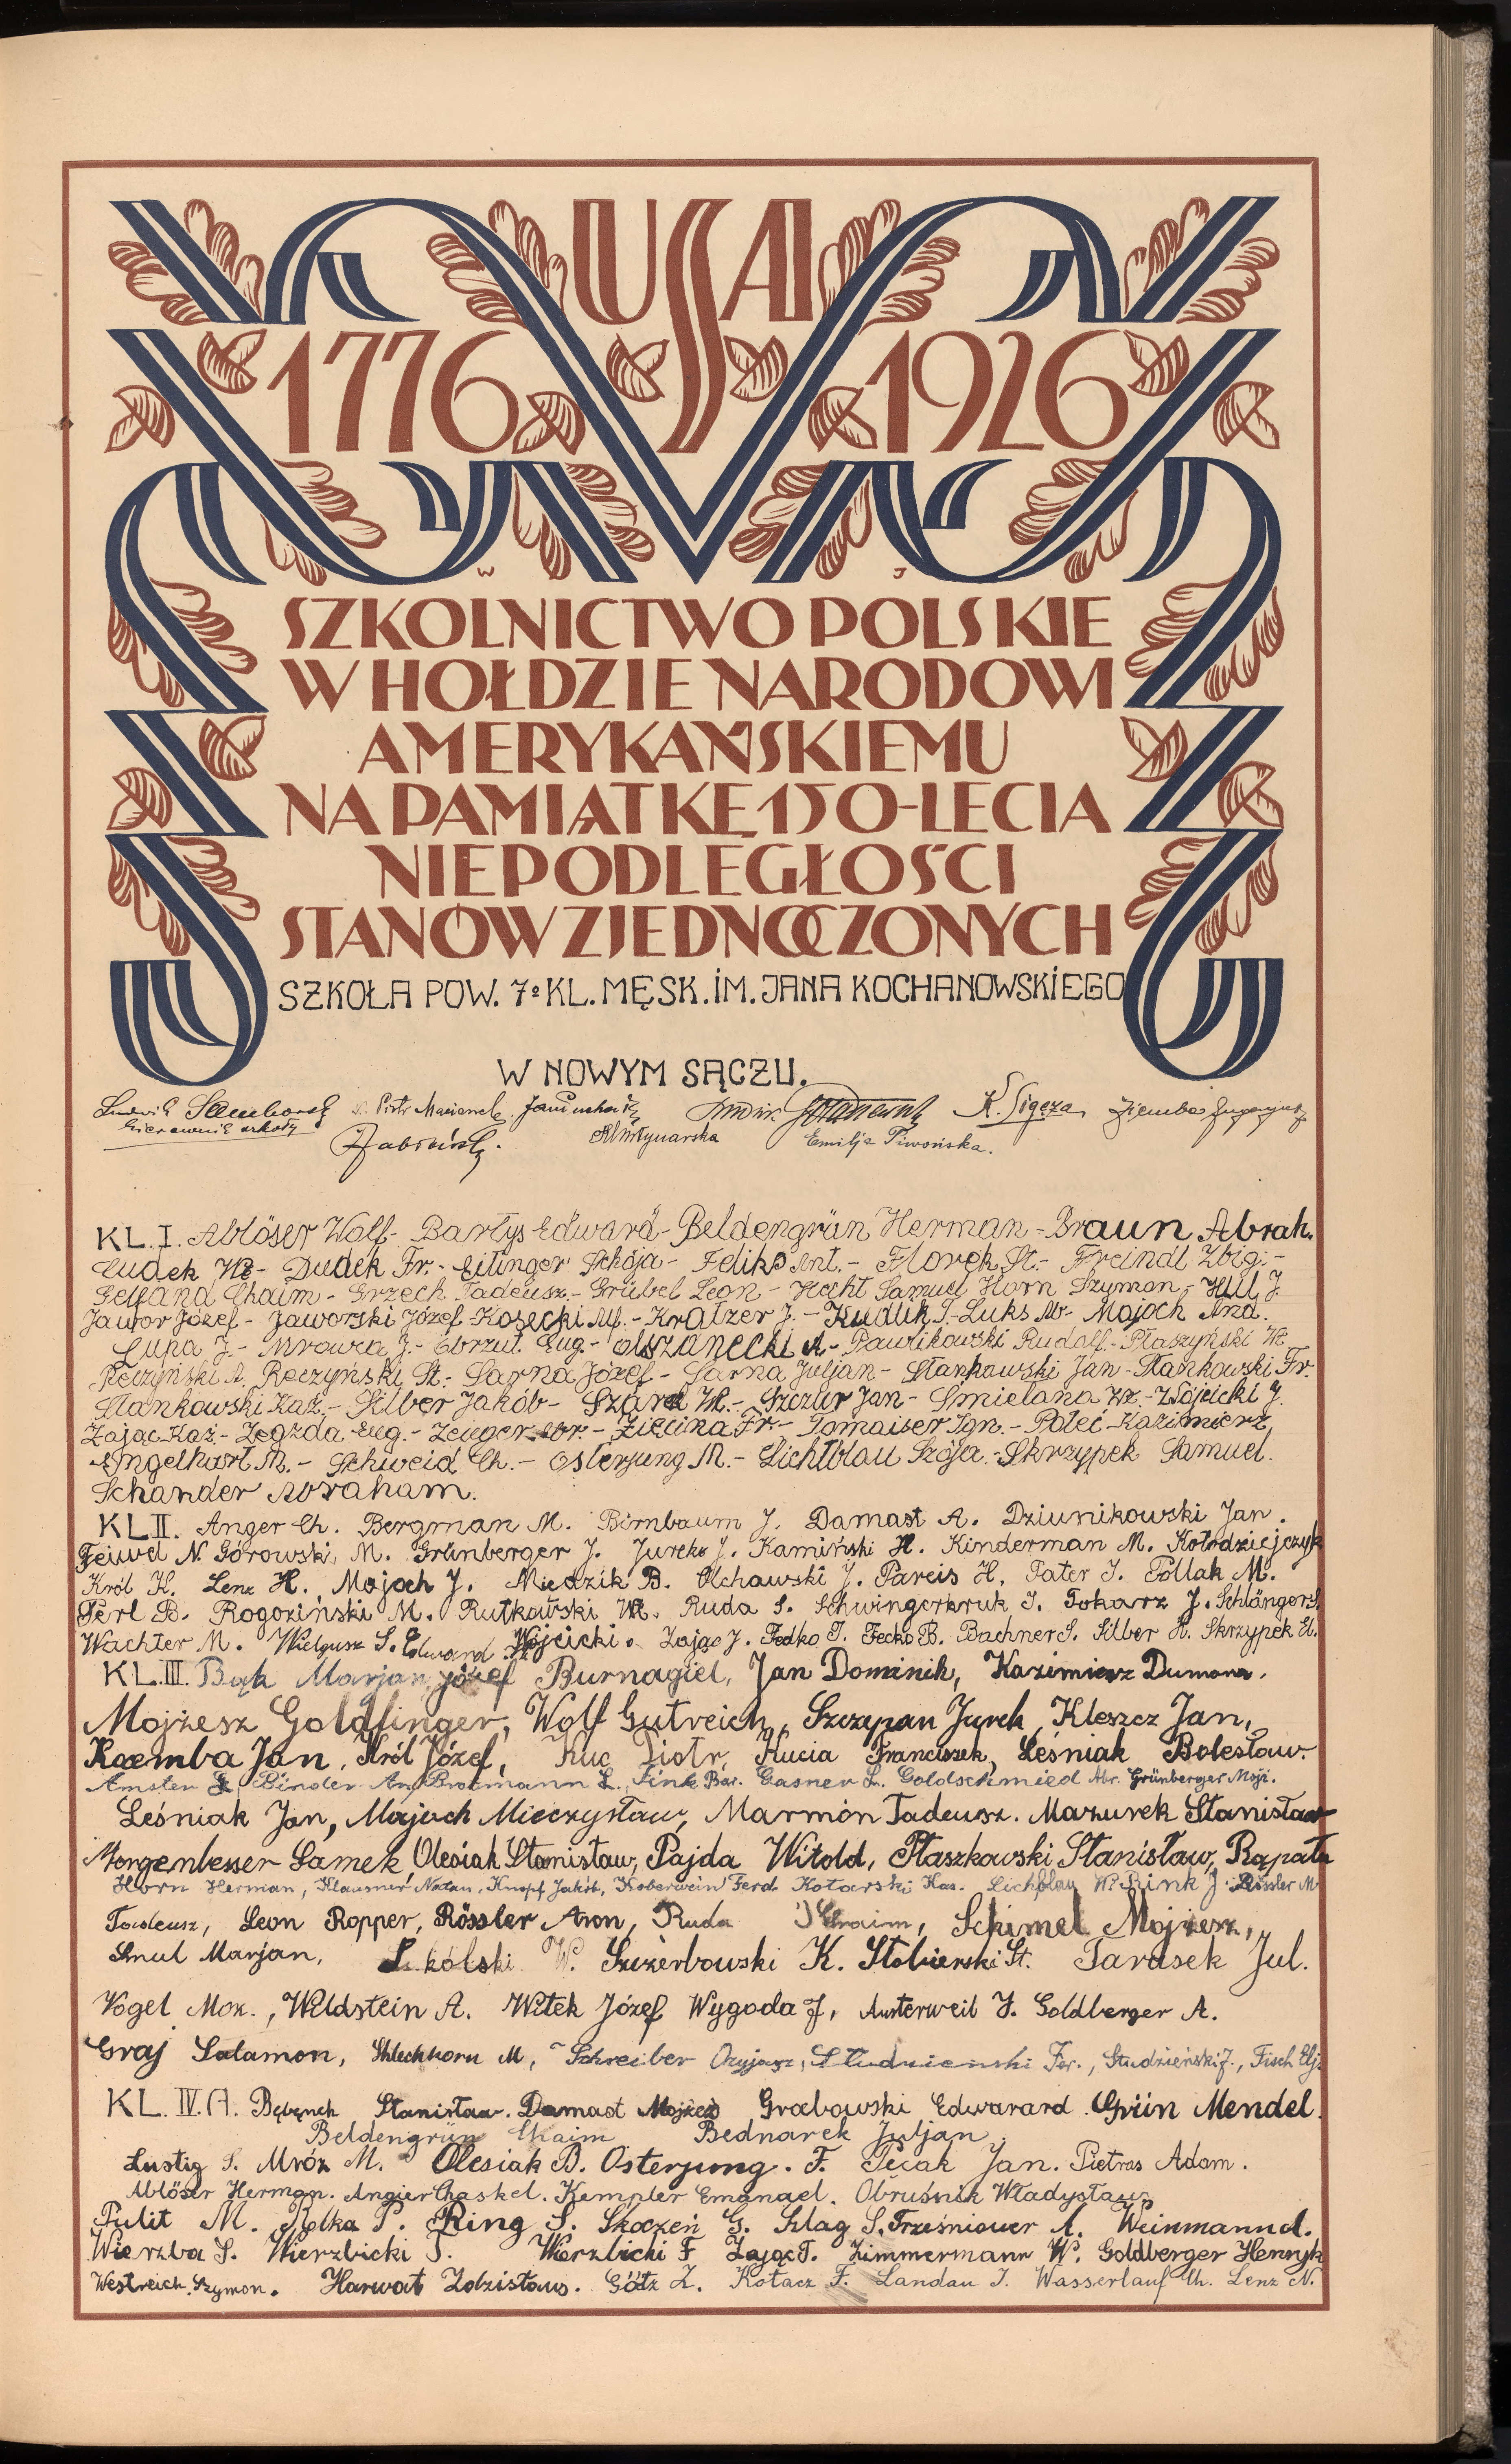 USA
1776 1926
W J
SZKOLNICTWO POLSKIE
W HOŁDZIE NARODOWI
AMERYKAŃSKIEMU
NA PAMIĄTKĘ 150-LECIA
NIEPODLEGŁOŚCI
STANÓW ZJEDNOCZONYCH
SZKOŁA POW. 7º KL. MĘSK. IM. JANA KOCHANOWSKIEGO
W NOWYM SĄCZU.
Ludwik Piotr K. Gigoza Ziemba
kierownik szkoły
Młynarska Emilja Piwońska.
KL. I. Ablöser Wolf - Bartys Edward - Beldengrün Herman - Braun Abrah.
Cudek Wł - Dudek Fr. - Eilinger Schója - Feliks Ant. - Florek St. - Freindl Zbig. -
Gelfand Chaim - Grzech Tadeusz. - Grübel Leon - Hecht Samuel Horn Szymon - Hill J.
Jawor Józef - Jaworski Józef - Kosecki Alf. - Kratzer J. - Kudlik T. - Luks Ab - Majoch And.
Lupa J. - Mrowca J. - Obrzut Eug. - Olszanecki A - Pawlikowski Rudolf. - Ptaszyński Wł
Reczyński A. Reczyński St. - Sarna Józef - Sarna Juljan - Stankowski Jan - Stankowski Fr.
Stankowski Kaz. - Silber Jakób - Szarek Wł. - Szczur Jan - Smietana Wł. - Wójcicki J.
Zając Kaz. - Zegzda Eug. - Zeuger Abr. - Zięcina Fr. - Tomaiser Ign. - Polei Kazimierz,
Engelhart M. - Schweid Ch. - Osterjung M. - Lichtblau Szója. - Skrzypek Samuel.
Schander Abraham.
KL II. Anger Ch. Bergman M. Birnbaum J. Damast A. Dziunikowski Jan.
Feiwel N. Górowski, M. Grünberger J. Jurcko J. Kamiński H. Kinderman M. Kołodziejczyk
Król K. Lenz H. Mojoch J. Miedzik B. Olchawski J. Pareis H, Pater I. Pollak M.
Perl B. Rogoziński M. Rutkowski Wł. Ruda S. Schwingerkruk I. Tokarz J. Schlänger S.
Wachter M. Wielgusz S. Edward Wójcicki. Zając J. Fedko T. Fecko B. Bachner S. Silber H. Skrzypek El.
KL. III. Bąk Marjan, Józef Burnagiel, Jan Dominik, Kazimierz Dumana.
Mojżesz Goldfinger, Wolf Gutreich, Szczepan Jurek, Kleszcz Jan,
Koemba Jan, Król Józef, Kuc Piotr, Kucia Franciszek, Leśniak Bolesław.
Amster Binder Brotmann L. Fink Bar. Gasner L. Goldschmied Abr. Grünberger Mojż.
Leśniak Jan, Majoch Mieczysław, Marmón Tadeusz. Mazurek Stanisław
Morgenbesser Samek Olesiak Stanisław, Pajda Witold, Ptaszkowski Stanisław, Rapała
Horn Herman, Klausner Natan, Knopf Jakób, Koberwein Ferd. Kotarski Kaz. Lichblau W. Rink J. Rössler M
Tadeusz, Leon Ropper, Rössler Aron, Ruda Chaim, Schimel Mojżesz,
Smul Marjan, W. Szczerbowski K. Stobierski St. Tarasek Jul.
Vogel Moz., Wildstein A. Witek Józef Wygoda J, Austerweil J. Goldberger A.
Graj Salamon, Shlechkorn M, Schreiber Ozyjasz, Studzienski Fer., Studzieński J., Fisch Elj.
KL. IV. A. Bębenek Stanisław. Damast Mojżesz Grabowski Edwarard. Grün Mendel.
Beldengrün Chaim Bednarek Juljan
Lustig S. Mróz M. Olesiak B. Osterjung. F. Peciak Jan. Pietras Adam.
Ablöser Herman. Angier Chaskel. Kempler Emanael. Obruśnik Władysław
Pulit M. Rolka P. Ring S. Skoczeń G. Szlag S. Trześniower A. Weinmann d.
Wierzba S. Wierzbicki T. Wierzbicki F Zając T. Zimmermann W. Goldberger Henryk
Westreich Szymon. Harwat Zdzisław. Götz Z. Kotacz F. Landau I. Wasserlauf Ch. Lenz N.